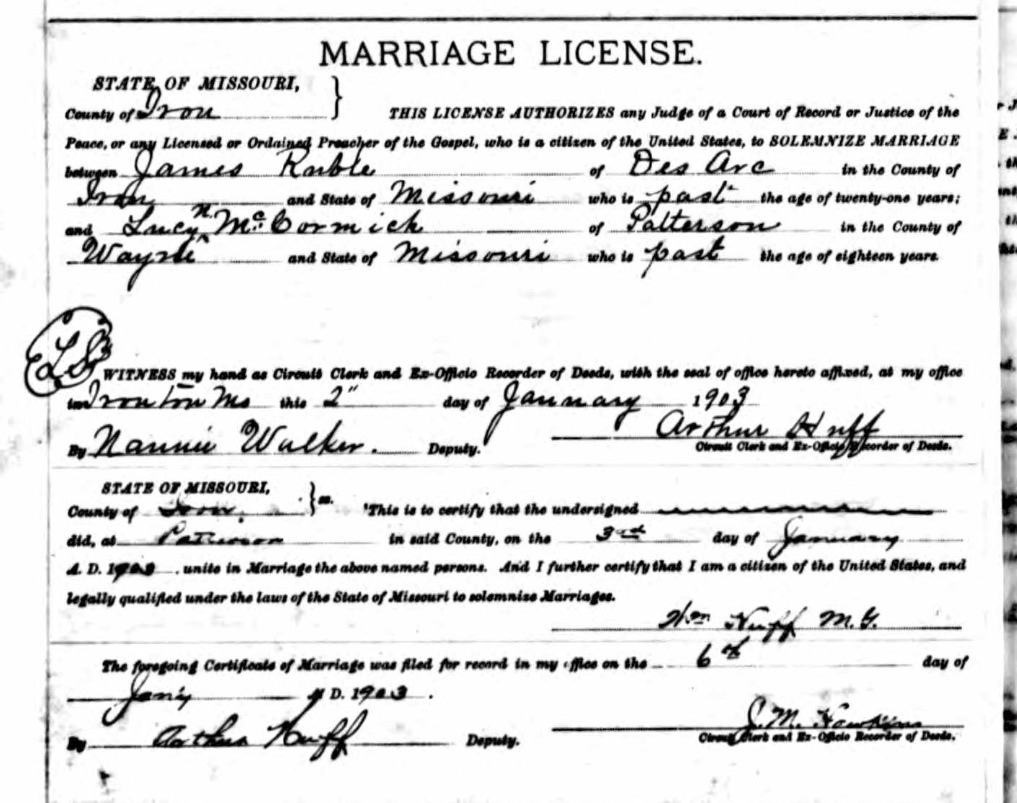 MARRIAGE LICENSE.
STATE OF MISSOURI,
County of Iron } THIS LICENSE AUTHORIZES any Judge of a Court of Record or Justice of the
Peace, or any Licensed or Ordained Preacher of the Gospel, who is a citizen of the United States, to SOLEMNIZE MARRIAGE
between James Ruble of Des Arc in the County of
Iron and State of Missouri who is past the age of twenty-one years;
and Lucy N. McCormick of Patterson in the County of
Wayne and State of Missouri who is past the age of eighteen years.
LS
WITNESS my hand as Circuit Clerk and Ex-Officio Recorder of Deeds, with the seal of office hereto affixed, at my office
in Ironton Mo this 2" day of January 1903
Arthur Huff
By Nannie Walker. Deputy. Circuit Clerk and Ex-Officio Recorder of Deeds.
STATE OF MISSOURI,
County of Iron. } ss. This is to certify that the undersigned
did, at Patterson in said County, on the 3rd day of January
A. D. 1903, unite in Marriage the above named persons. And I further certify that I am a citizen of the United States, and
legally qualified under the laws of the State of Missouri to solemnize Marriages.
Wm Huff M.G.
The foregoing Certificate of Marriage was filed for record in my office on the 6th day of
Jany A. D. 1903.
J. M. Hawkins
By Arthur Huff Deputy. Circuit Clerk and Ex-Officio Recorder of Deeds.